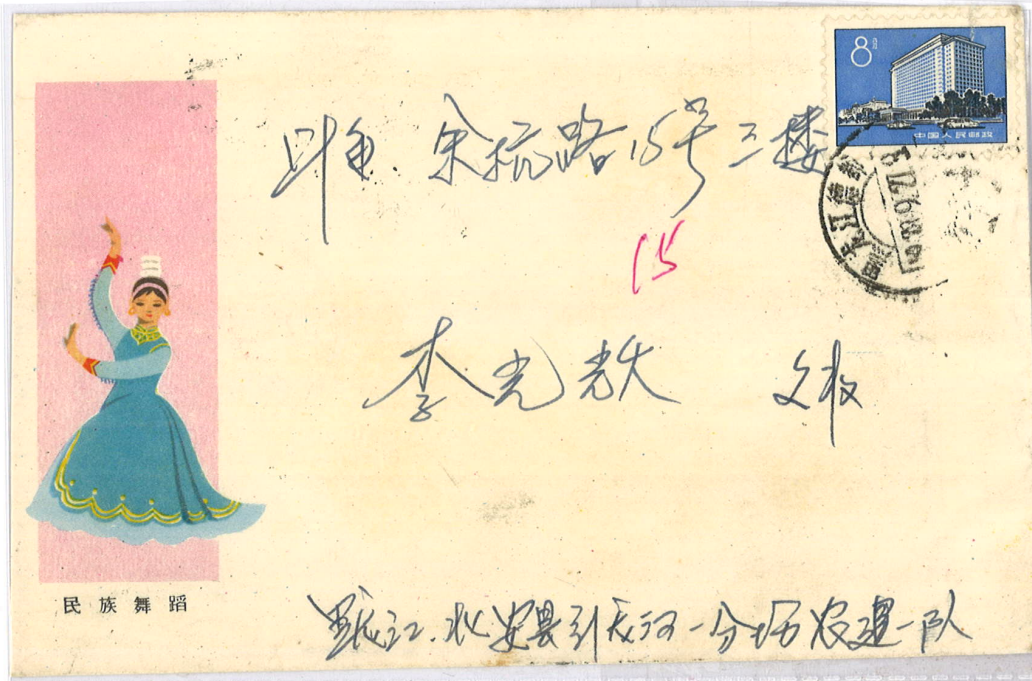 8分
中国人民邮政
余杭路15号三楼
黑龙江德都
15
李光 收
民族舞蹈
黑龙江.北安县引龙河一分场农建一队